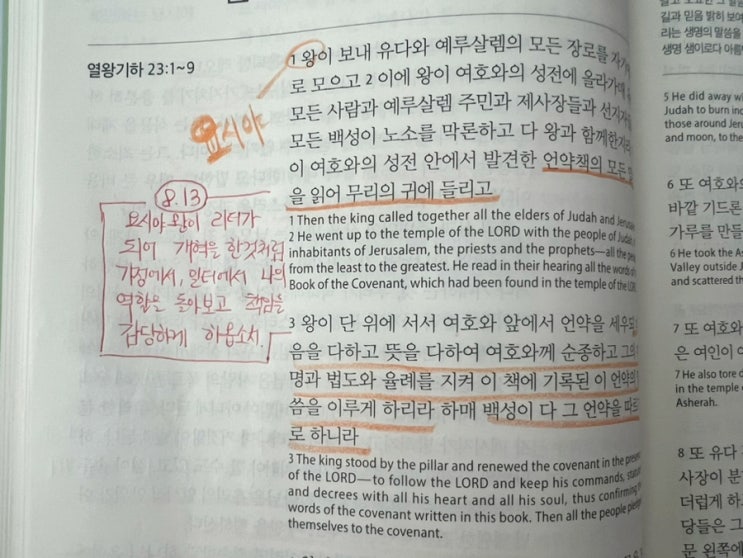 열왕기하 23:1~9
요시야
8.13
요시야 왕이 리더가
되어 개혁을 한것처럼
가정에서, 일터에서 나의
역할을 돌아보고 책임을
감당하게 하옵소서.
1 왕이 보내 유다와 예루살렘의 모든 장로를 자기에게
로 모으고 2 이에 왕이 여호와의 성전에 올라가매
모든 사람과 예루살렘 주민과 제사장들과 선지자들
모든 백성이 노소를 막론하고 다 왕과 함께한지라
이 여호와의 성전 안에서 발견한 언약책의 모든
을 읽어 무리의 귀에 들리고
1 Then the king called together all the elders of Judah and Jerusalem
2 He went up to the temple of the LORD with the people of Judah,
inhabitants of Jerusalem, the priests and the prophets—all the people
from the least to the greatest. He read in their hearing all the words of
Book of the Covenant, which had been found in the temple of the LORD.
3 왕이 단 위에 서서 여호와 앞에서 언약을 세우되
음을 다하고 뜻을 다하여 여호와께 순종하고 그의
명과 법도와 율례를 지켜 이 책에 기록된 이 언약의
씀을 이루게 하리라 하매 백성이 다 그 언약을 따르
로 하니라
3 The king stood by the pillar and renewed the covenant in the presence
of the LORD—to follow the LORD and keep his commands, statutes
and decrees with all his heart and all his soul, thus confirming
words of the covenant written in this book. Then all the people pledged
themselves to the covenant.
길과 믿음 밝히 보여
리는 생명의 말씀을
생명 샘이로다 아름
5 He did away w
Judah to burn inc
those around Jeru
and moon, to the
6 또 여호와의
바깥 기드론
가루를 만들
6 He took the As
Valley outside J
and scattered th
7 또 여호와
은 여인이
7 He also tore d
in the temple
Asherah.
8 또 유다
사장이 분
더럽게 하
당들은 그
문 왼쪽에